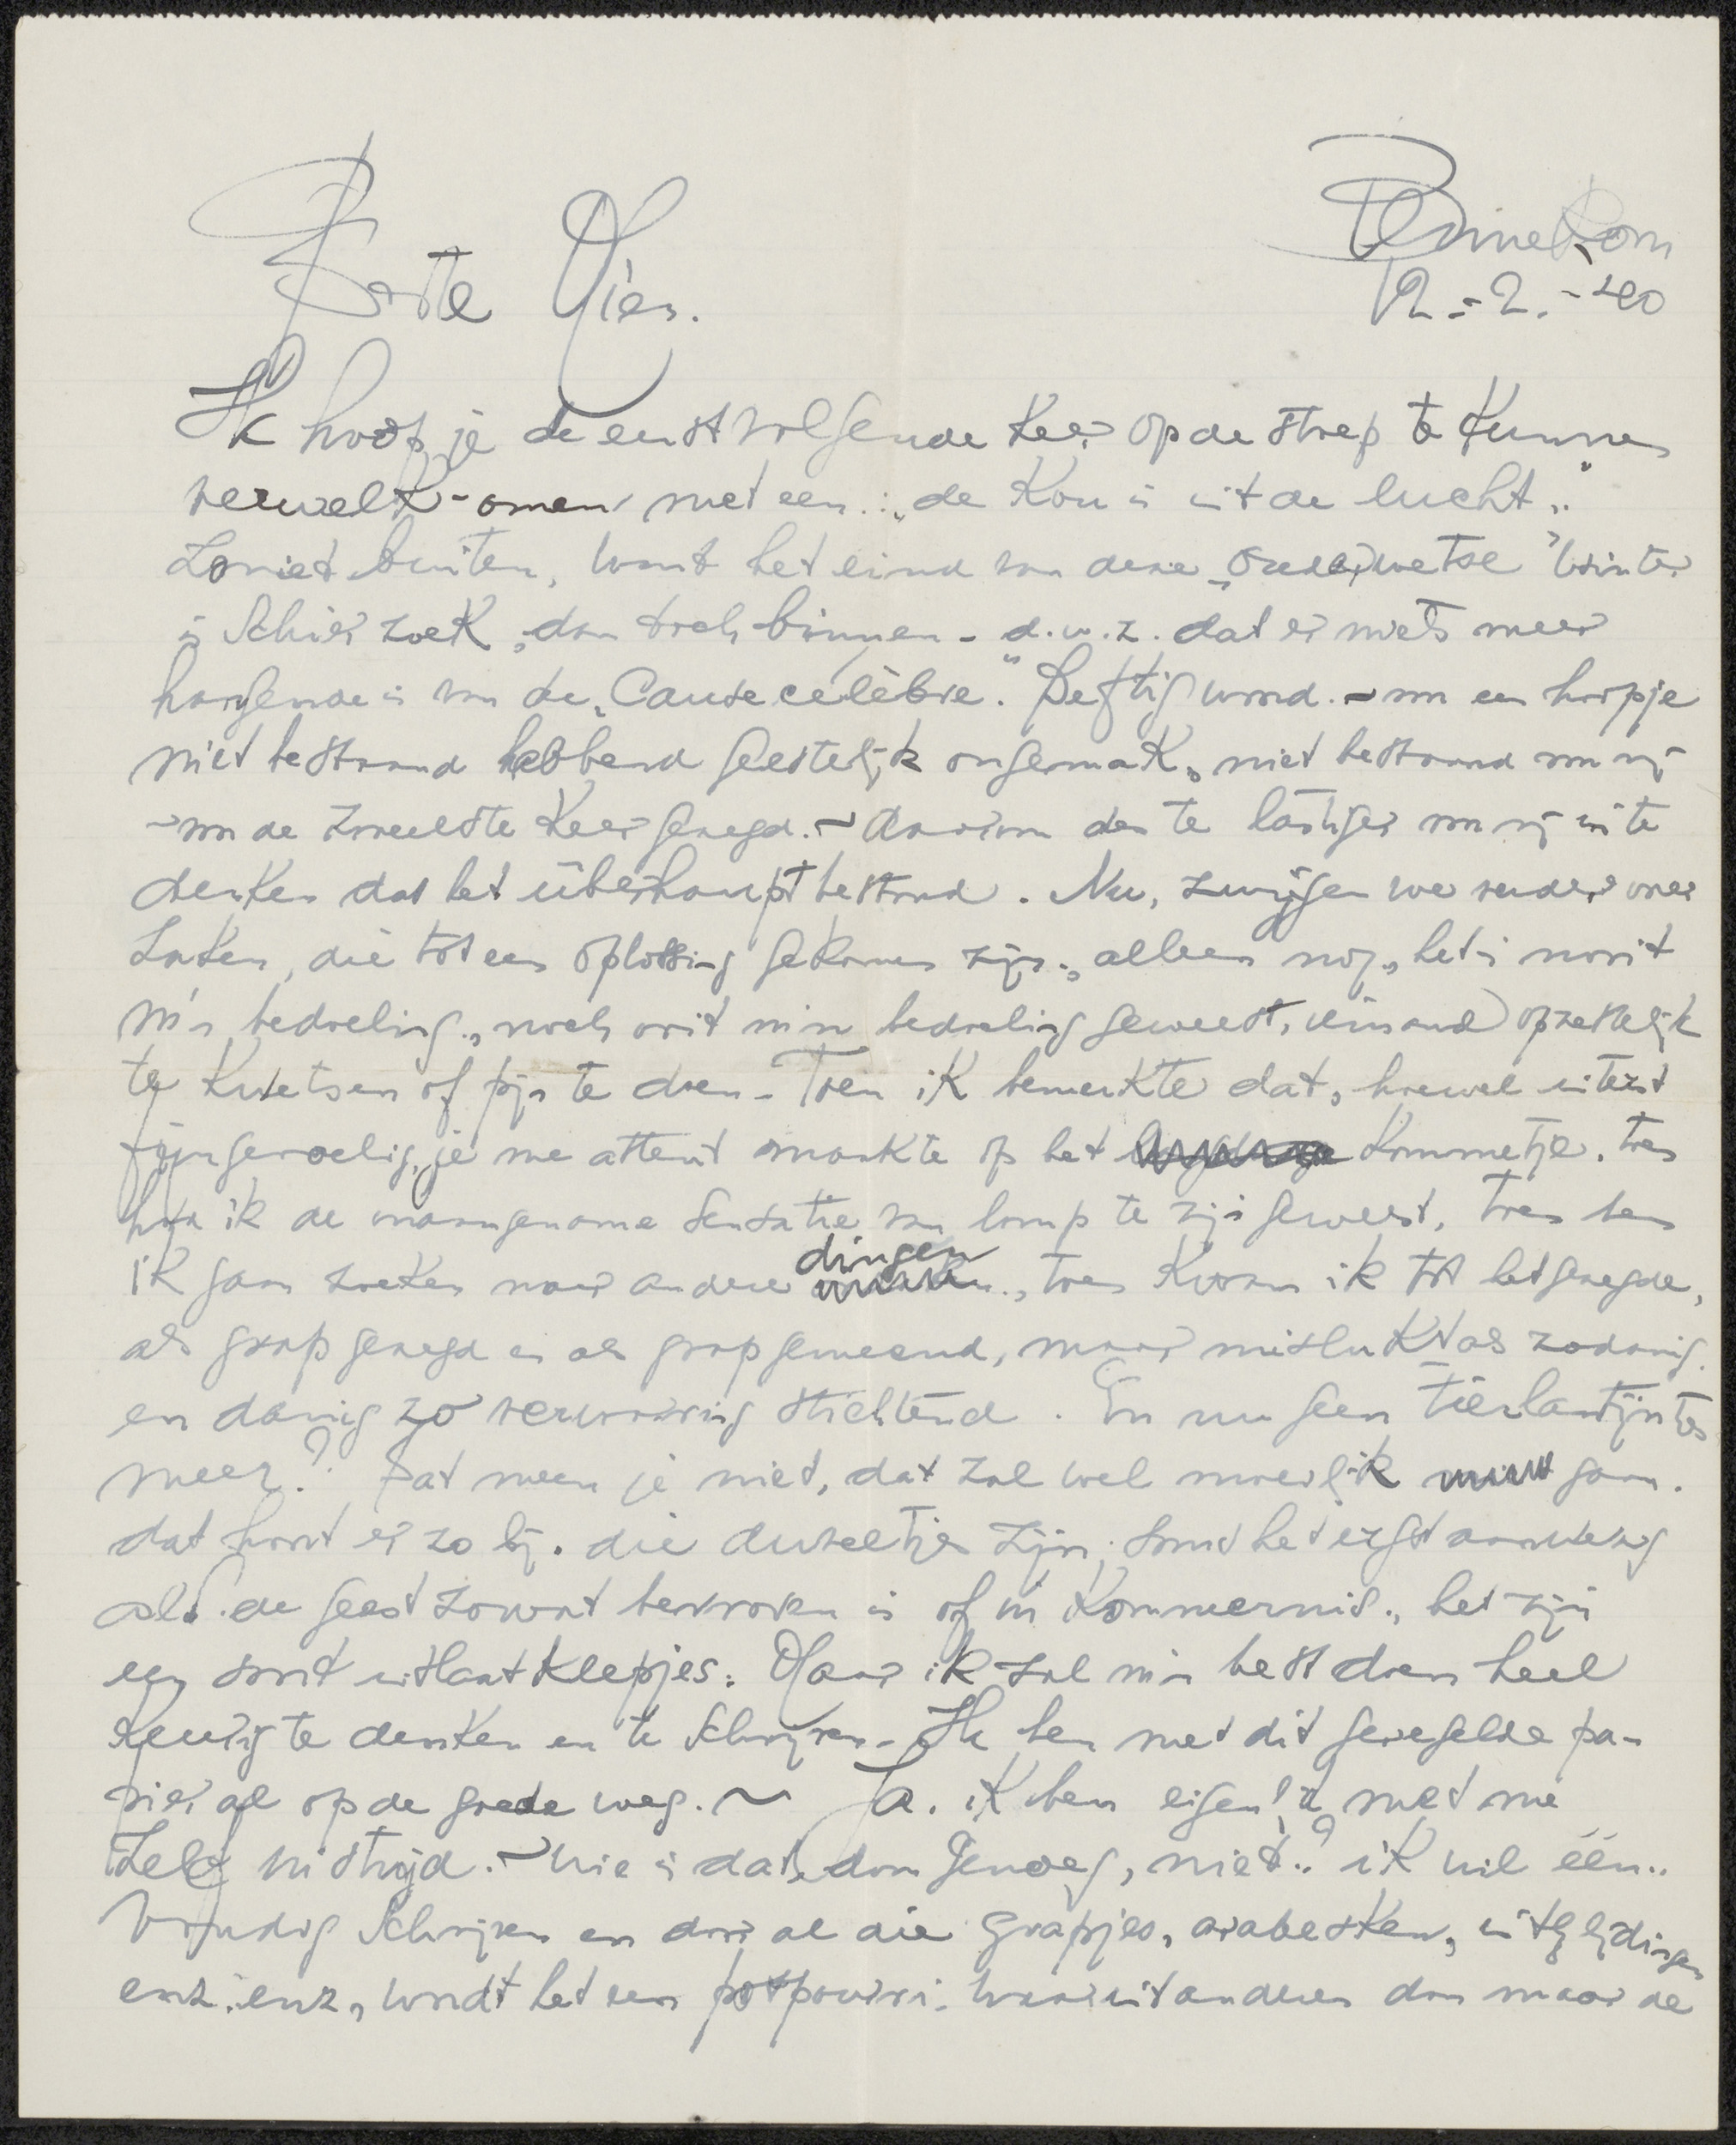 Bennekom
12.-2.-40
Beste Mien.
Ik hoop je de eerstvolgende keer op de stoep te kunnen
verwelk-omen met een: „de kou is uit de lucht".
Zo niet buiten, want het eind van deze „ouderwetse" winter
is schier zoek, dan toch binnen - d.w.z. dat er niets meer
hangende is van de „Cause celèbre." Deftig woord. - voor een hoopje
niet bestaand hebbend geestelijk ongemak, niet bestaand voor mij
- voor de tweede keer gezegd. ~ daarom des te lastiger voor mij in te
denken dat het überhaupt bestond. Nu, zwijgen we verder over
zaken, die tot een oplossing gekomen zijn., alleen nog, het is nooit
m'n bedoeling., noch ooit mijn bedoeling geweest, iemand opzettelijk
te kwetsen of pijn te doen. Toen ik bemerkte dat, hoewel uiterst
fijngevoelig, je me attent maakte op het kommetje. toen
had ik de onaangename sensatie van lomp te zijn geweest, toen ben
ik gaan zoeken naar andere dingen., toen kwam ik tot het gezegde,
als grap gezegd en als grap gemeend, maar mislukt als zodanig.
en danig zo verwarring stichtend. En nu geen tierlantijntjes
meer? Dat meen je niet, dat zal wel moeilijk gaan.
dat hoort er zo bij. die duveltjes zijn; soms het ergst aanwezig
als de geest zowat bevroren is of in kommernis., het zijn
een soort uitlaatklepjes. Maar ik zal m'n best doen heel
keurig te denken en te schrijven. Ik ben met dit geregelde pa-
pier al op de goede weg. ~ Ja. ik ben eigenl'k met me
zelf in strijd. ~ Wie is dat dan genoeg, niet? ik wil één..
voudig schrijven en door al die grapjes, arabesken, uitglijdingen
enz. enz, wordt het een potpourri. waaruit anderen dan maar de